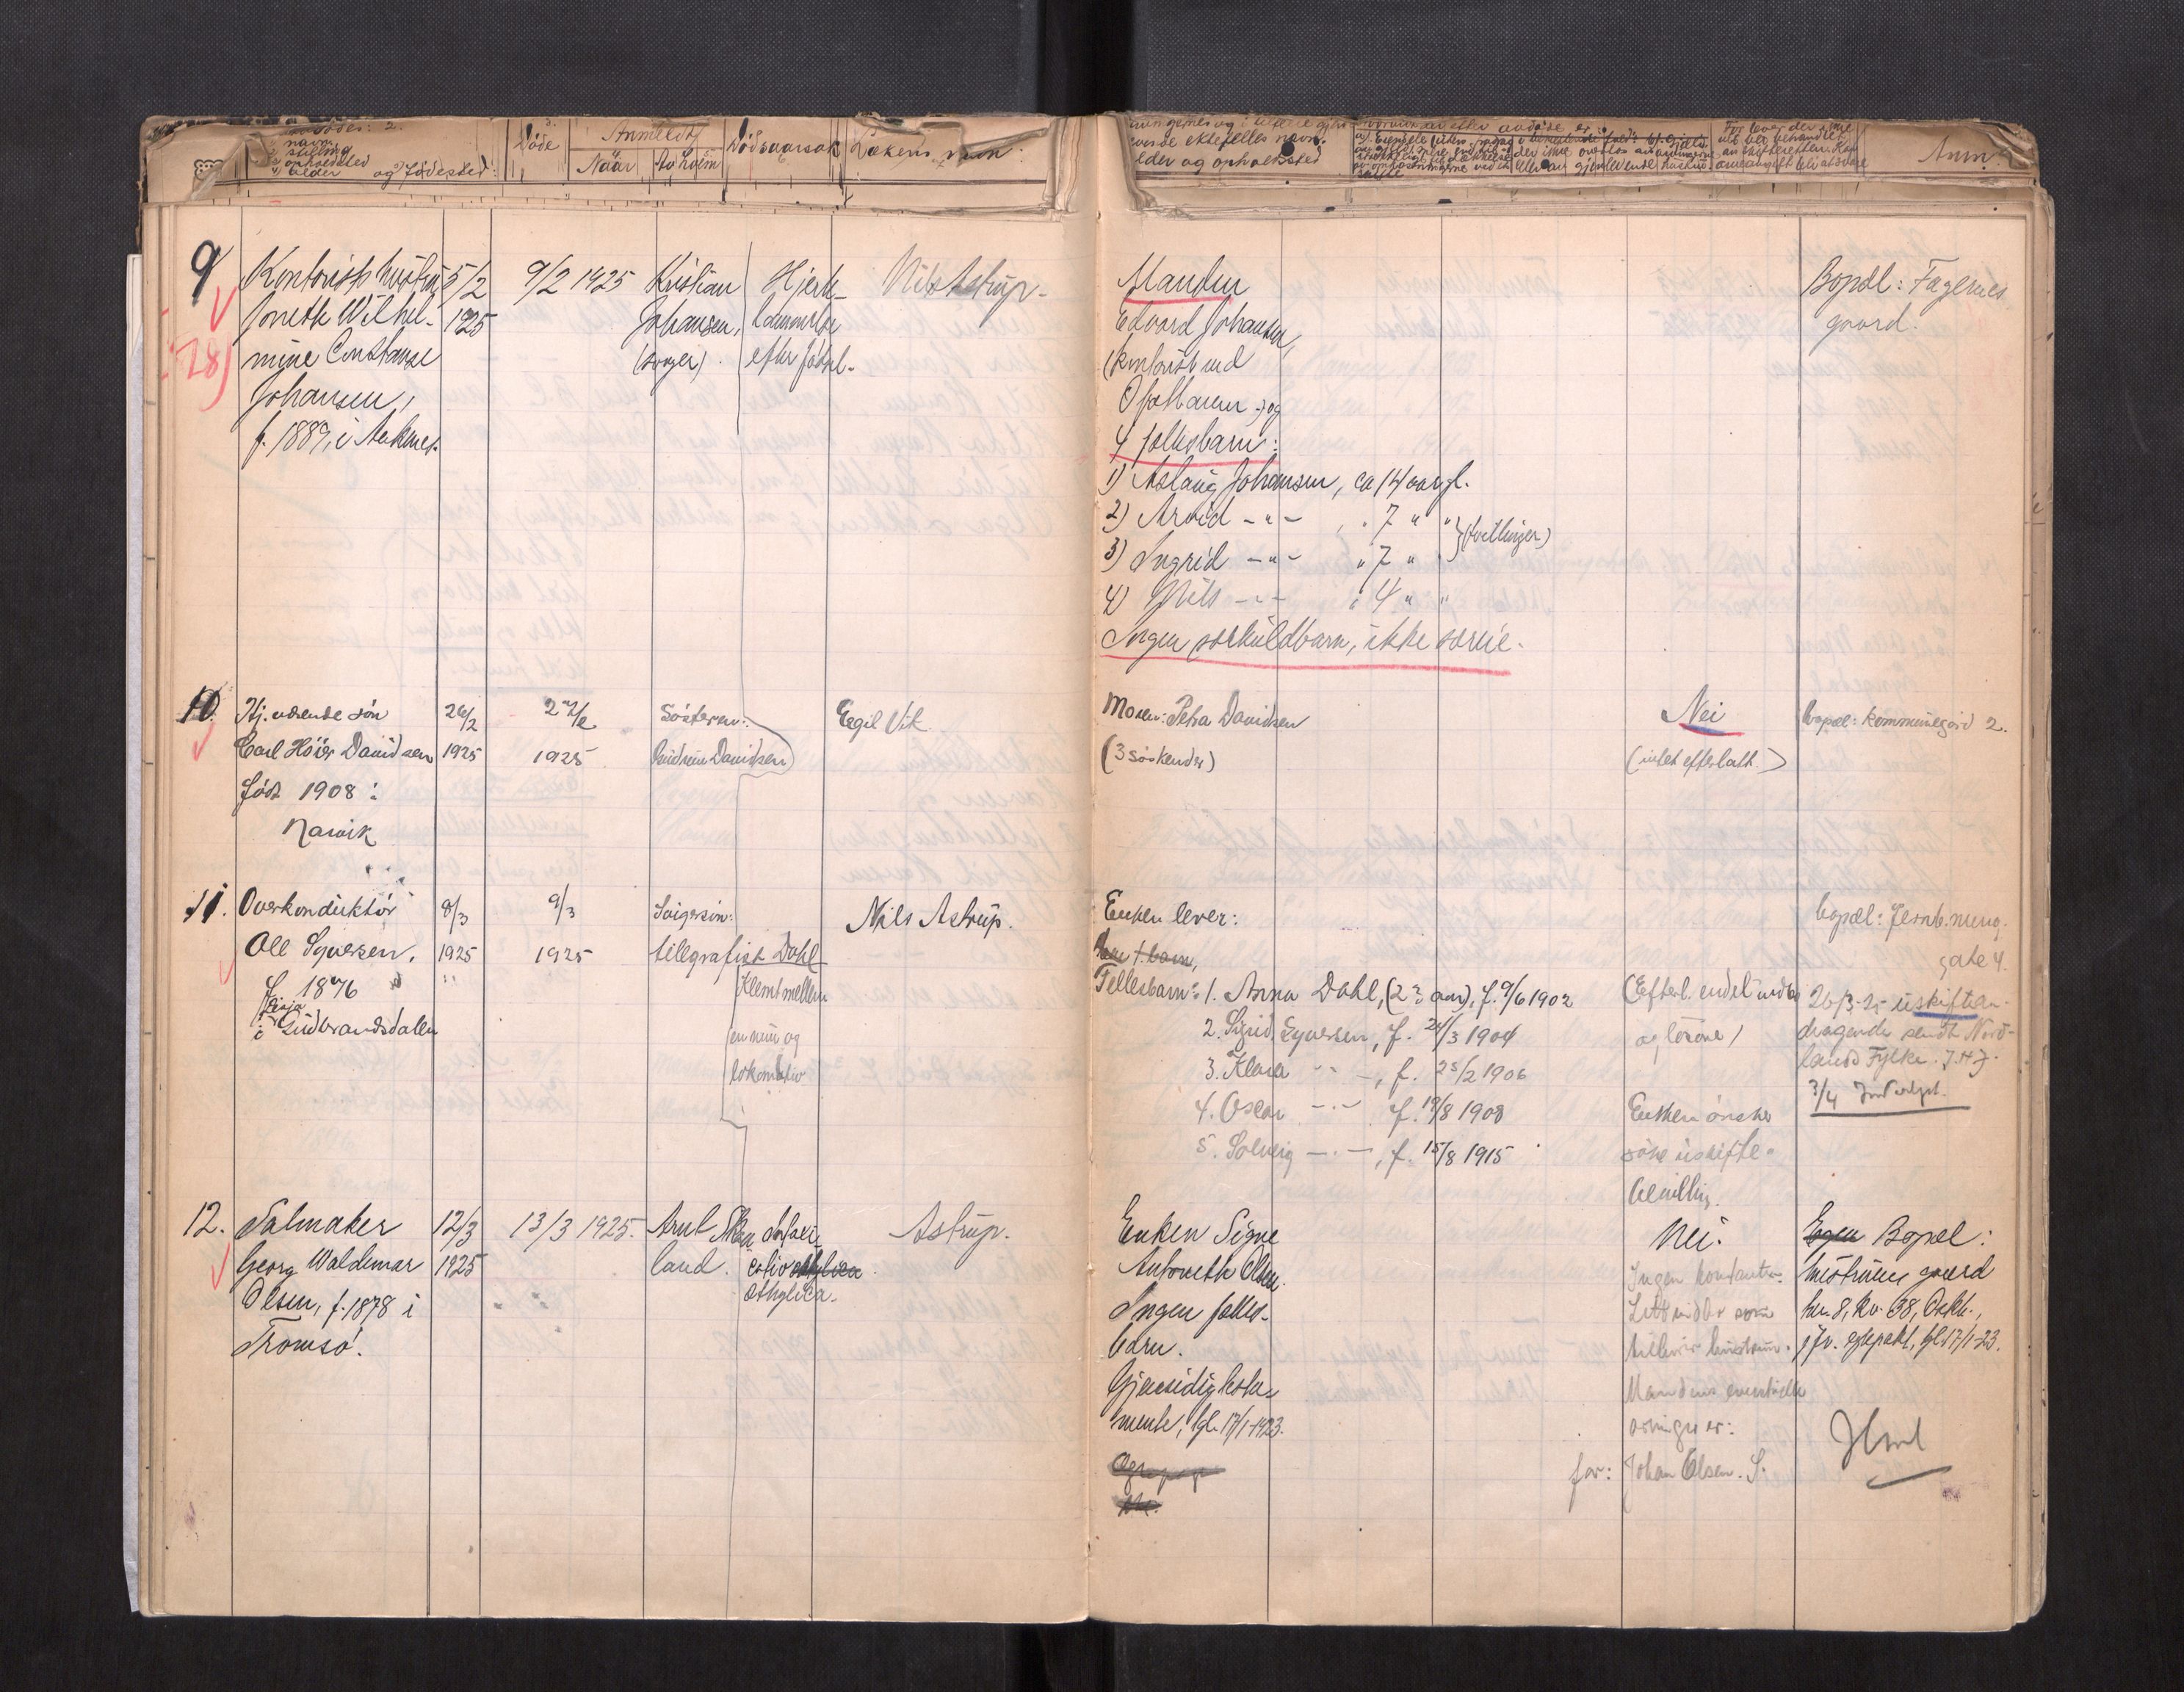 navn
stilling
opholdsted
alder og fødested:
Døde
Anmeldt
Naar
Av hvem
Dødsaarsak
Lækens navn:
levende ektefelles navn,
alder og opholdssted
Anm.
9
Kontorists hustru
Wilhel-
mine Constanse
Johansen,
f. 1889, i
5/2
1925
9/2 1925
Kristian
Johansen,
(svoger).
Hjerte-
lammelse
efter fødsel.
Nils Astrup.
28)
Manden
Edvard Johansen,
kontorist ved
og
4 fellesbarn:
1) Aslaug Johansen, ca 14 aar gl.
2) Arvid -"- , " 7 " "
3) Ingrid -"- " 7 " } (tvillinger)
4) Nils -"- " 4 " "
Ingen særkuldbarn, ikke særeie.
Bopæl: Fagernes
gaard.
10.
Hj. værende søn
Carl Høier Davidsen
født 1908:
Narvik
26/2
1925
27/2
1925
Søsteren:
Gudrun Davidsen
Egil Vik
Moren: Petra Davidsen
(3 søskende)
Nei
(intet efterlatt.)
bopæl: Kommunegård 2.
11.
Overkonduktør
Ole Syversen,
f 1876
i Gudbrandsdalen
8/3
1925
9/3
1925
Svigersøn:
telegrafist Dahl
Klemt mellem
en mur og
lokomotiv
Nils Astrup.
Enken lever:
Fellesbarn: 1. Anna Dahl, (23 aar), f. 9/6 1902
2. Sigrid Syversen, f. 24/3 1904
3. Klara -"-, f. 25/2 1906
4. Oscar -"- f. 19/8 1908
5. Solveig -"-, f. 15/8 1915
(Efterl. endel indbo
og løsøre)
Enken ønsker
søke uskifte-
bevilling.
bopæl: Jernb. meng.
gate 4.
26/3-25 uskiftean-
dragende sendt Nord-
lands Fylke. J.H.J.
3/4
12.
Salmaker
Georg Waldemar
Olsen, f. 1878 i
Tromsø.
12/3
1925
13/3 1925.
Arnt
land.
æthylica.
Astrup.
Enken Signe
Antonette Olsen.
Ingen felles-
barn.
Gjensidig testa-
mente, tgl. 17/1-1923.
Nei.
Ingen kontanter.
Litt indbo som
tilhører hustruen.
Mandens eventuelle
arvinger er:
far: Johan Olsen. S.
Bopæl:
hustruens gaard
hr. 8, Kv. 38, Oskb.,
jfr. egtepakt, tgl. 17/1-23.